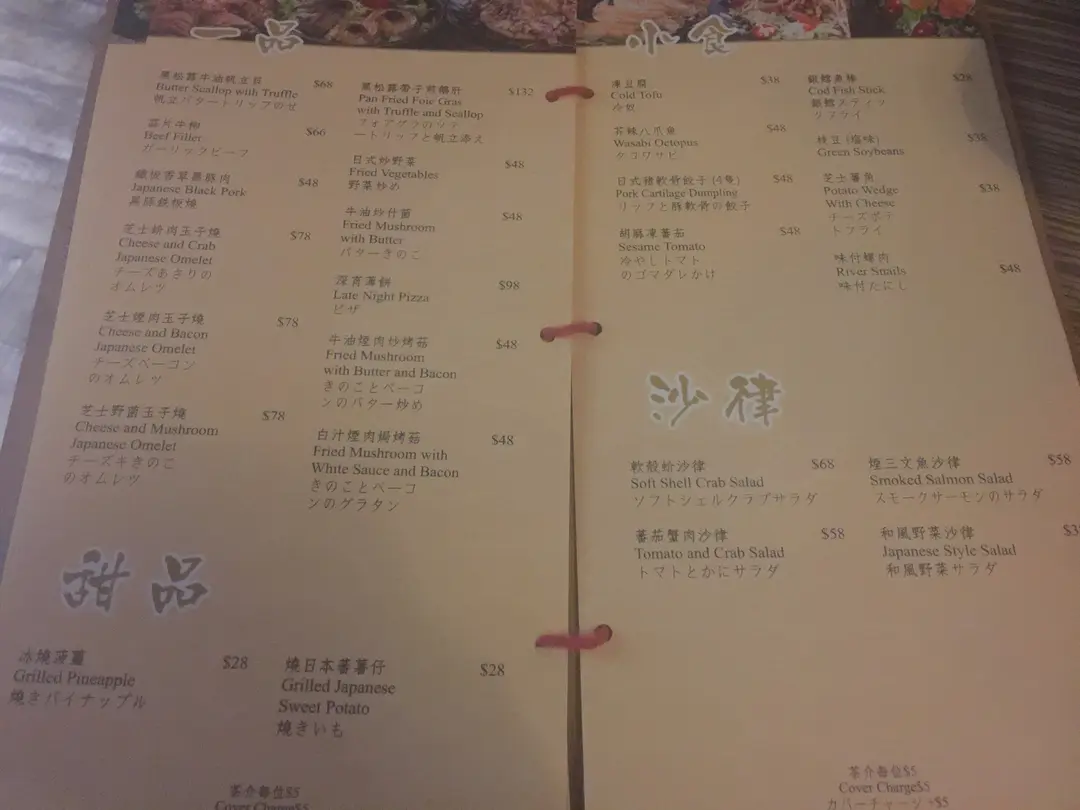 一品
黑松露牛油帆立貝 $68
Butter Scallop with Truffle
帆立バタートリップのせ
蒜片牛柳 $66
Beef Filler
ガーリックビーフ
鐵板香草黑豚肉 $48
Japanese Black Pork
黒豚鉄板焼
芝士蚧肉玉子燒 $78
Cheese and Crab
Japanese Omelet
チーズあさりの
オムレツ
芝士煙肉玉子燒 $78
Cheese and Bacon
Japanese Omelet
チーズベーコン
のオムレツ
芝士野菌玉子燒 $78
Cheese and Mushroom
Japanese Omelet
チーズキきのこ
のオムレツ
黑松露帶子煎鵝肝 $132
Pan Fried Foie Gras
with Truffle and Scallop
フォアグラのソテ
ートリップと帆立添え
日式炒野菜 $48
Fried Vegetables
野菜炒め
牛油炒什菌 $48
Fried Mushroom
with Butter
バターきのこ
深宵薄餅 $98
Late Night Pizza
ピザ
牛油煙肉炒烤菇 $48
Fried Mushroom
with Butter and Bacon
きのことベーコ
ンのバター炒め
白汁煙肉焗烤菇 $48
Fried Mushroom with
White Sauce and Bacon
きのことベーコ
ンのグラタン
甜品
冰燒菠蘿 $28
Grilled Pineapple
燒きパイナップル
燒日本蕃薯仔 $28
Grilled Japanese
Sweet Potato
燒きいも
茶介每位$5
Cover Charge$5
小食
凍豆腐 $38
Cold Tofu
冷奴
芥辣八爪魚 $48
Wasabi Octopus
タコワサビ
日式豬軟骨餃子(4隻) $48
Pork Cartilage Dumpling
リップと豚軟骨の餃子
胡麻凍蕃茄 $48
Sesame Tomato
冷やしトマト
のゴマダレかけ
銀鱈魚棒 $28
Cod Fish Stick
銀鱈スティッ
クフライ
枝豆(塩味) $38
Green Soybeans
芝士薯角 $38
Potato Wedge
With Cheese
チーズポテ
トフライ
味付螺肉 $48
River Snails
味付たにし
沙律
軟殼蚧沙律 $68
Soft Shell Crab Salad
ソフトシェルクラブサラダ
蕃茄蟹肉沙律 $58
Tomato and Crab Salad
トマトとかにサラダ
煙三文魚沙律 $58
Smoked Salmon Salad
スモークサーモンのサラダ
和風野菜沙律
Japanese Style Salad
和風野菜サラダ
茶介每位$5
Cover Charge$5
カバーチャージ $5